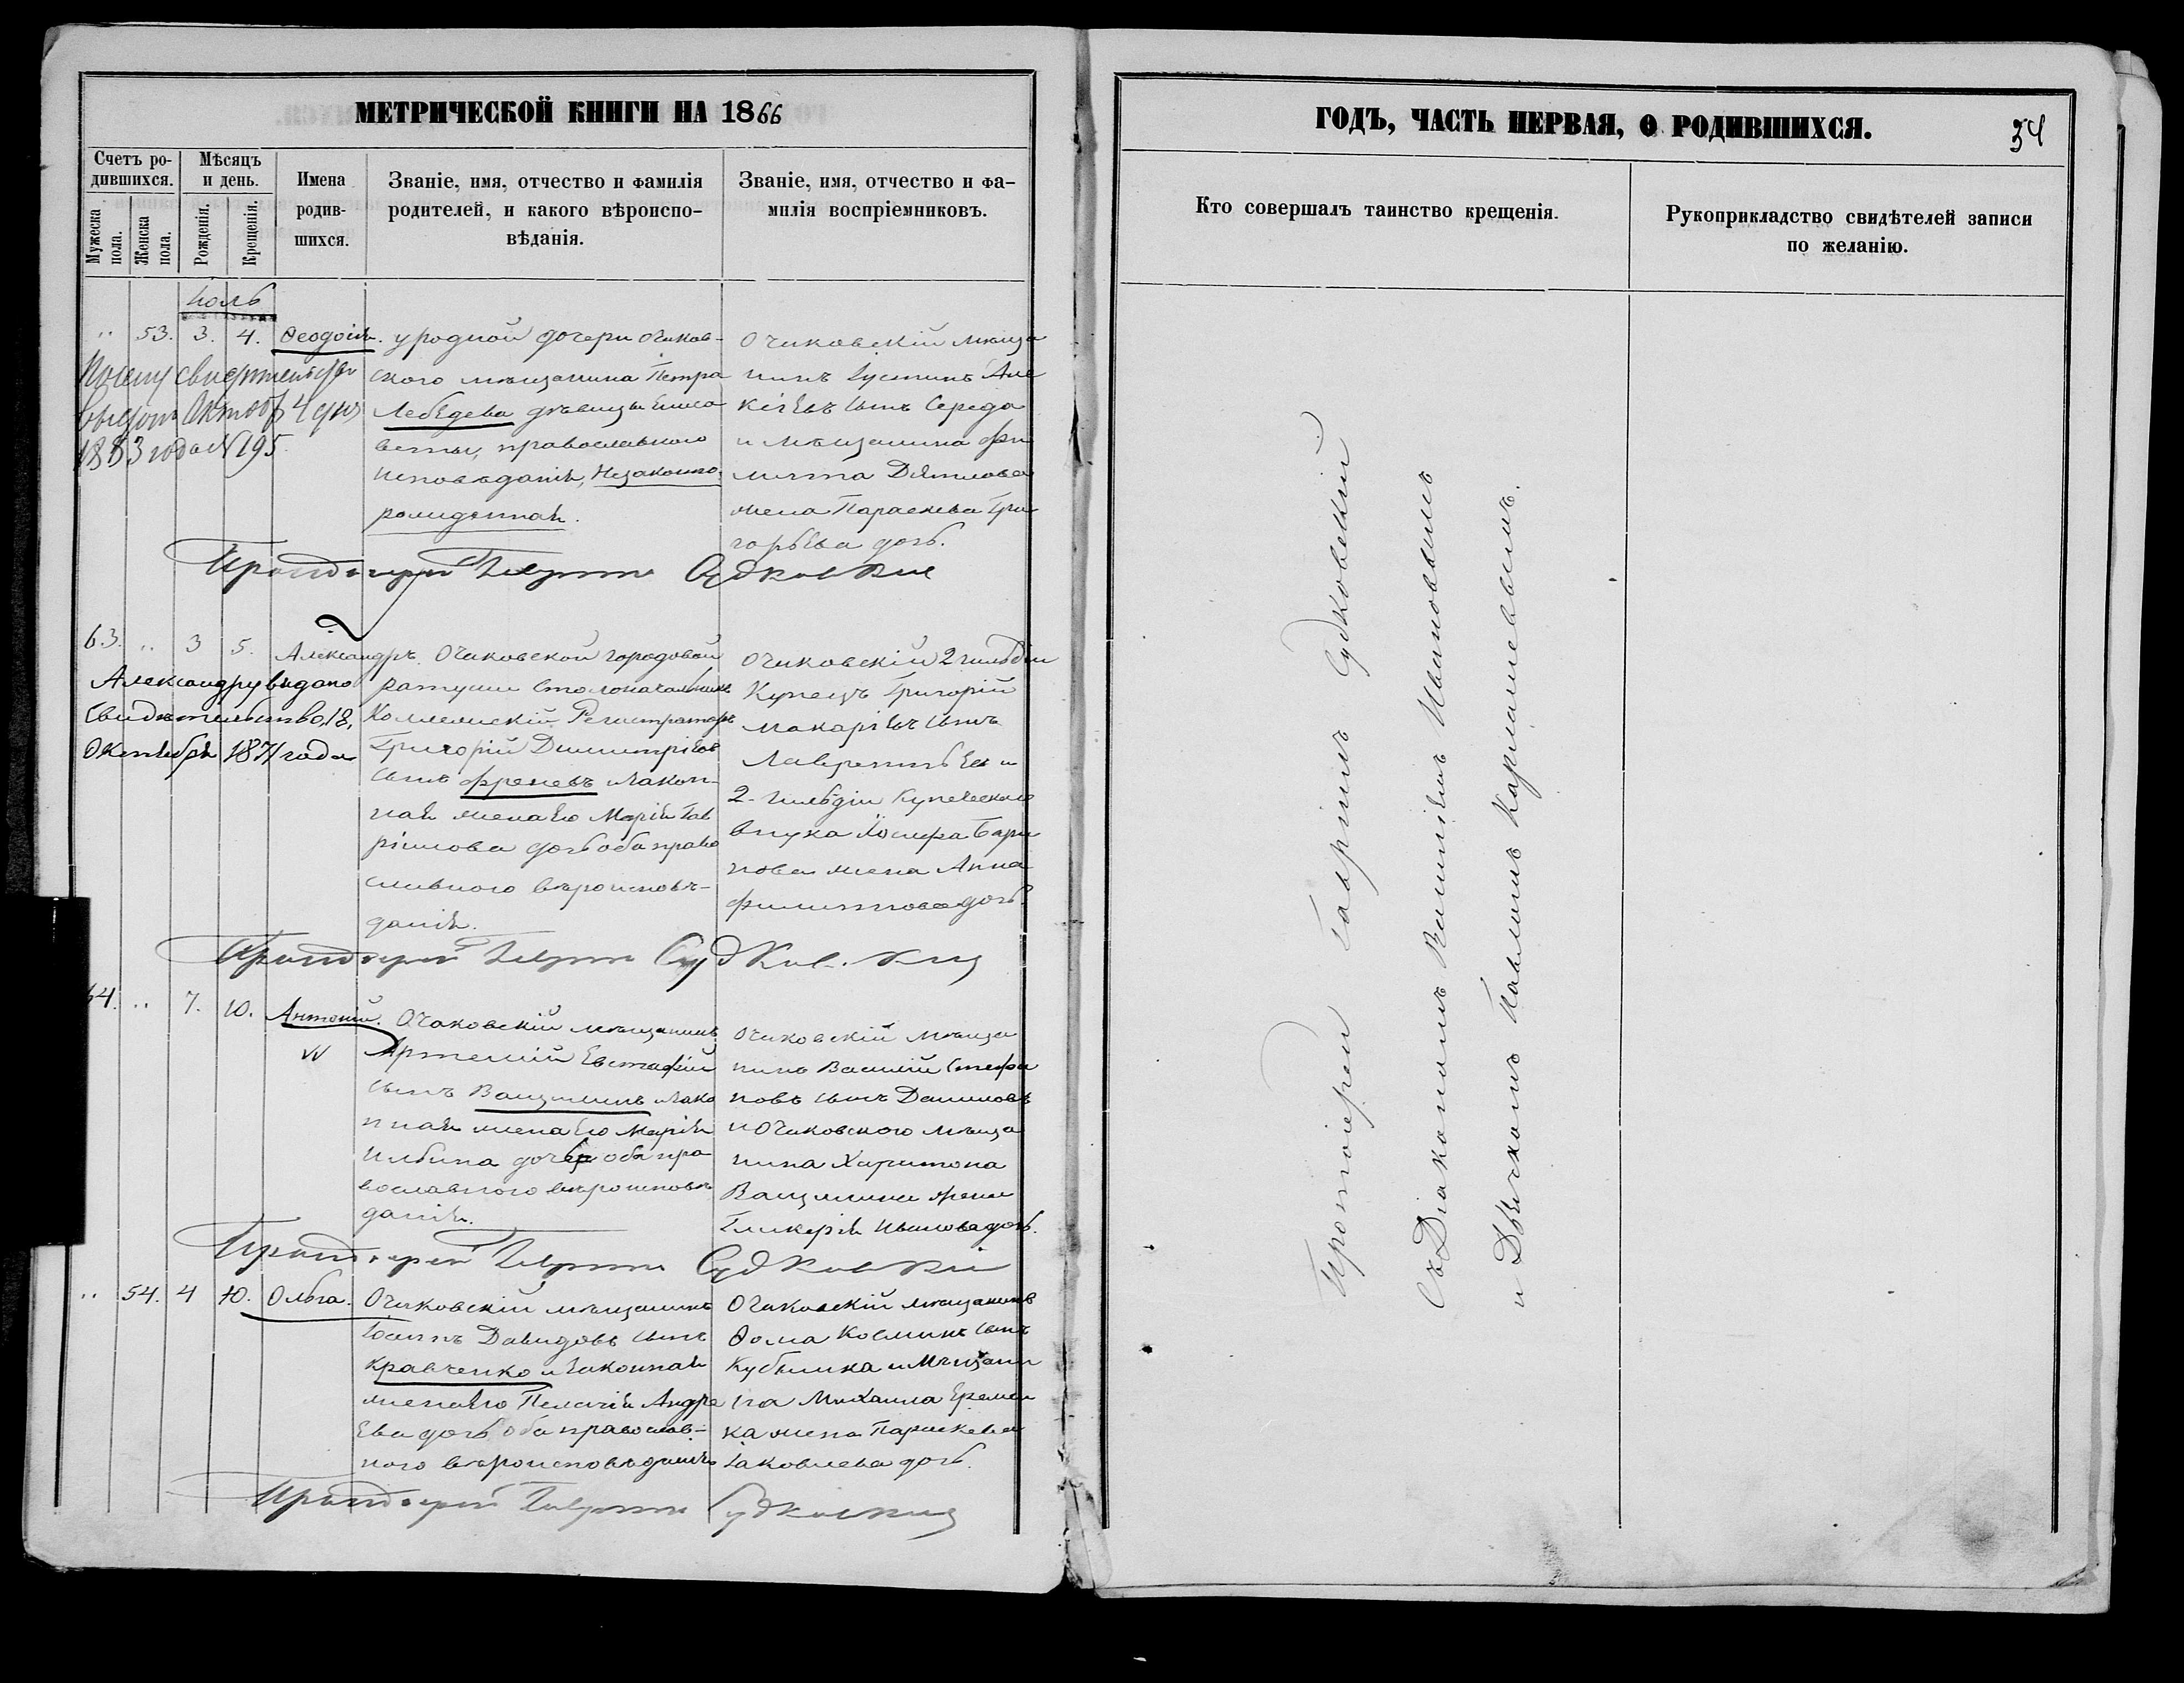 МЕТРИЧЕСКОЙ КНИГИ НА 1866
Счетъ ро-
дившихся.
Мѣсяцъ
и день.
Мужеска
пола.
Женска
пола.
Рожденія.
Крещенія.
Имена
родив-
шихся.
Званіе, имя, отчество и фамилія
родителей, и какого вѣроиспо-
вѣданія.
Званіе, имя, отчество и фа-
милія воспріемниковъ.
Іюль
" 53. 3. 4. Ѳеодосія.
1883 года N 195
у родной дочери Очаков-
скаго мѣщанина Петра
Лебедева дѣвицы Елиса
веты, православнаго
исповѣданія, Незаконно-
рожденная.
Очаковскій мѣща
нинъ Іустинъ Але
ксіевъ сынъ Середа
и мѣщанина Фи
липпа Данилова
жена Параскева Гри
горьева дочь.
Протоіерей Гавріилъ Судковскій
63. " 3 5. Александръ.
Александру выдано
Свидѣтельство, 18,
Октября 1871 года
Очаковской городовой
ратуши столоначальникъ
Коллежскій Регистраторъ
Григорій Димитріевъ
сынъ Френевъ и закон-
ная жена его Марія Гав
ріилова дочь оба право
славнаго вѣроисповѣ-
данія.
Очаковскій 2 гильдіи
Купецъ Григорій
Макаріевъ сынъ
Лаврентьев и
2-гильдіи Купеческаго
внука Іосифа Бари
нова жена Анна
Филиппова дочь.
Протоіерей Гавріилъ Судковскій
64. " 7. 10. Антоній.
Очаковскій мѣщанинъ
Артемій Евстафіев
сынъ Ващилинъ и зако
нная жена его Марія
Ильина дочь оба пра
вославнаго вѣроисповѣ
данія.
Очаковскій мѣща
нинъ Василій Стефа
новъ сынъ Даниловъ
и Очаковскаго мѣща
нина Харитона
Ващилина жена
Гликерія Иванова дочь.
Протоіерей Гавріилъ Судковскій
" 54. 4 10. Ольга.
Очаковскій мѣщанинъ
Іоаннъ Давидовъ сынъ
Кравченко и законная
жена его Пелагія Андре
ева дочь оба православ-
наго вѣроисповѣданія
Очаковскій мѣщанинъ
Ѳома Косминъ сынъ
и Мѣщани
на Михаила Еремен
ка жена Параскева
Іаковлева дочь.
Протоіерей Гавріилъ Судковскій
ГОДЪ, ЧАСТЬ ПЕРВАЯ, О РОДИВШИХСЯ.
54
Кто совершалъ таинство крещенія.
Рукоприкладство свидѣтелей записи
по желанію.
Протоіерей Гавріилъ Судковскій
Съ Діакономъ Ивановымъ
и Дьячкомъ Павломъ